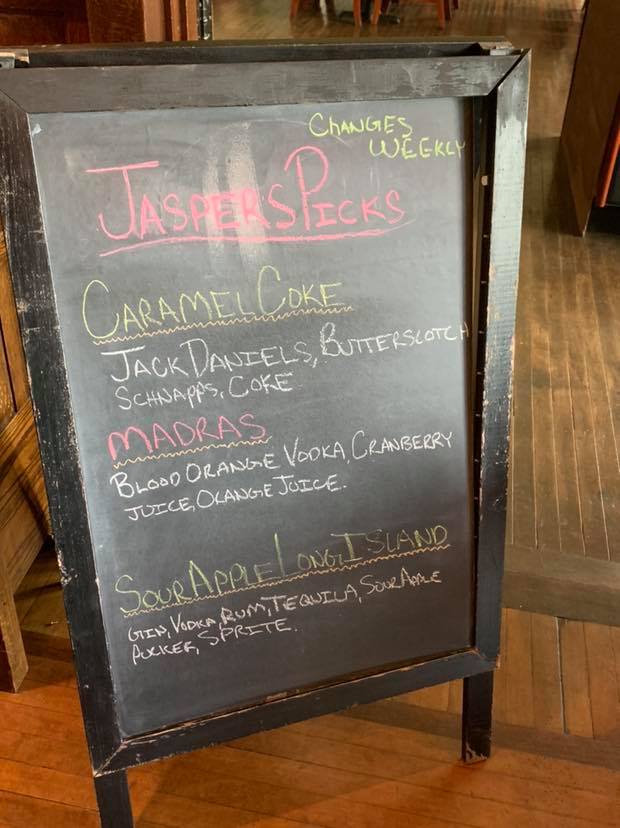 CHANGES
WEEKLY
JASPERS PICKS
CARAMEL COKE
JACK DANIELS, BUTTERSCOTCH
SCHNAPPS, COKE
MADRAS
BLOOD ORANGE VODKA, CRANBERRY
JUICE, ORANGE JUICE.
SOUR APPLE LONG ISLAND
GIN, VODKA, RUM, TEQUILA, SOUR APPLE
PUCKER, SPRITE.